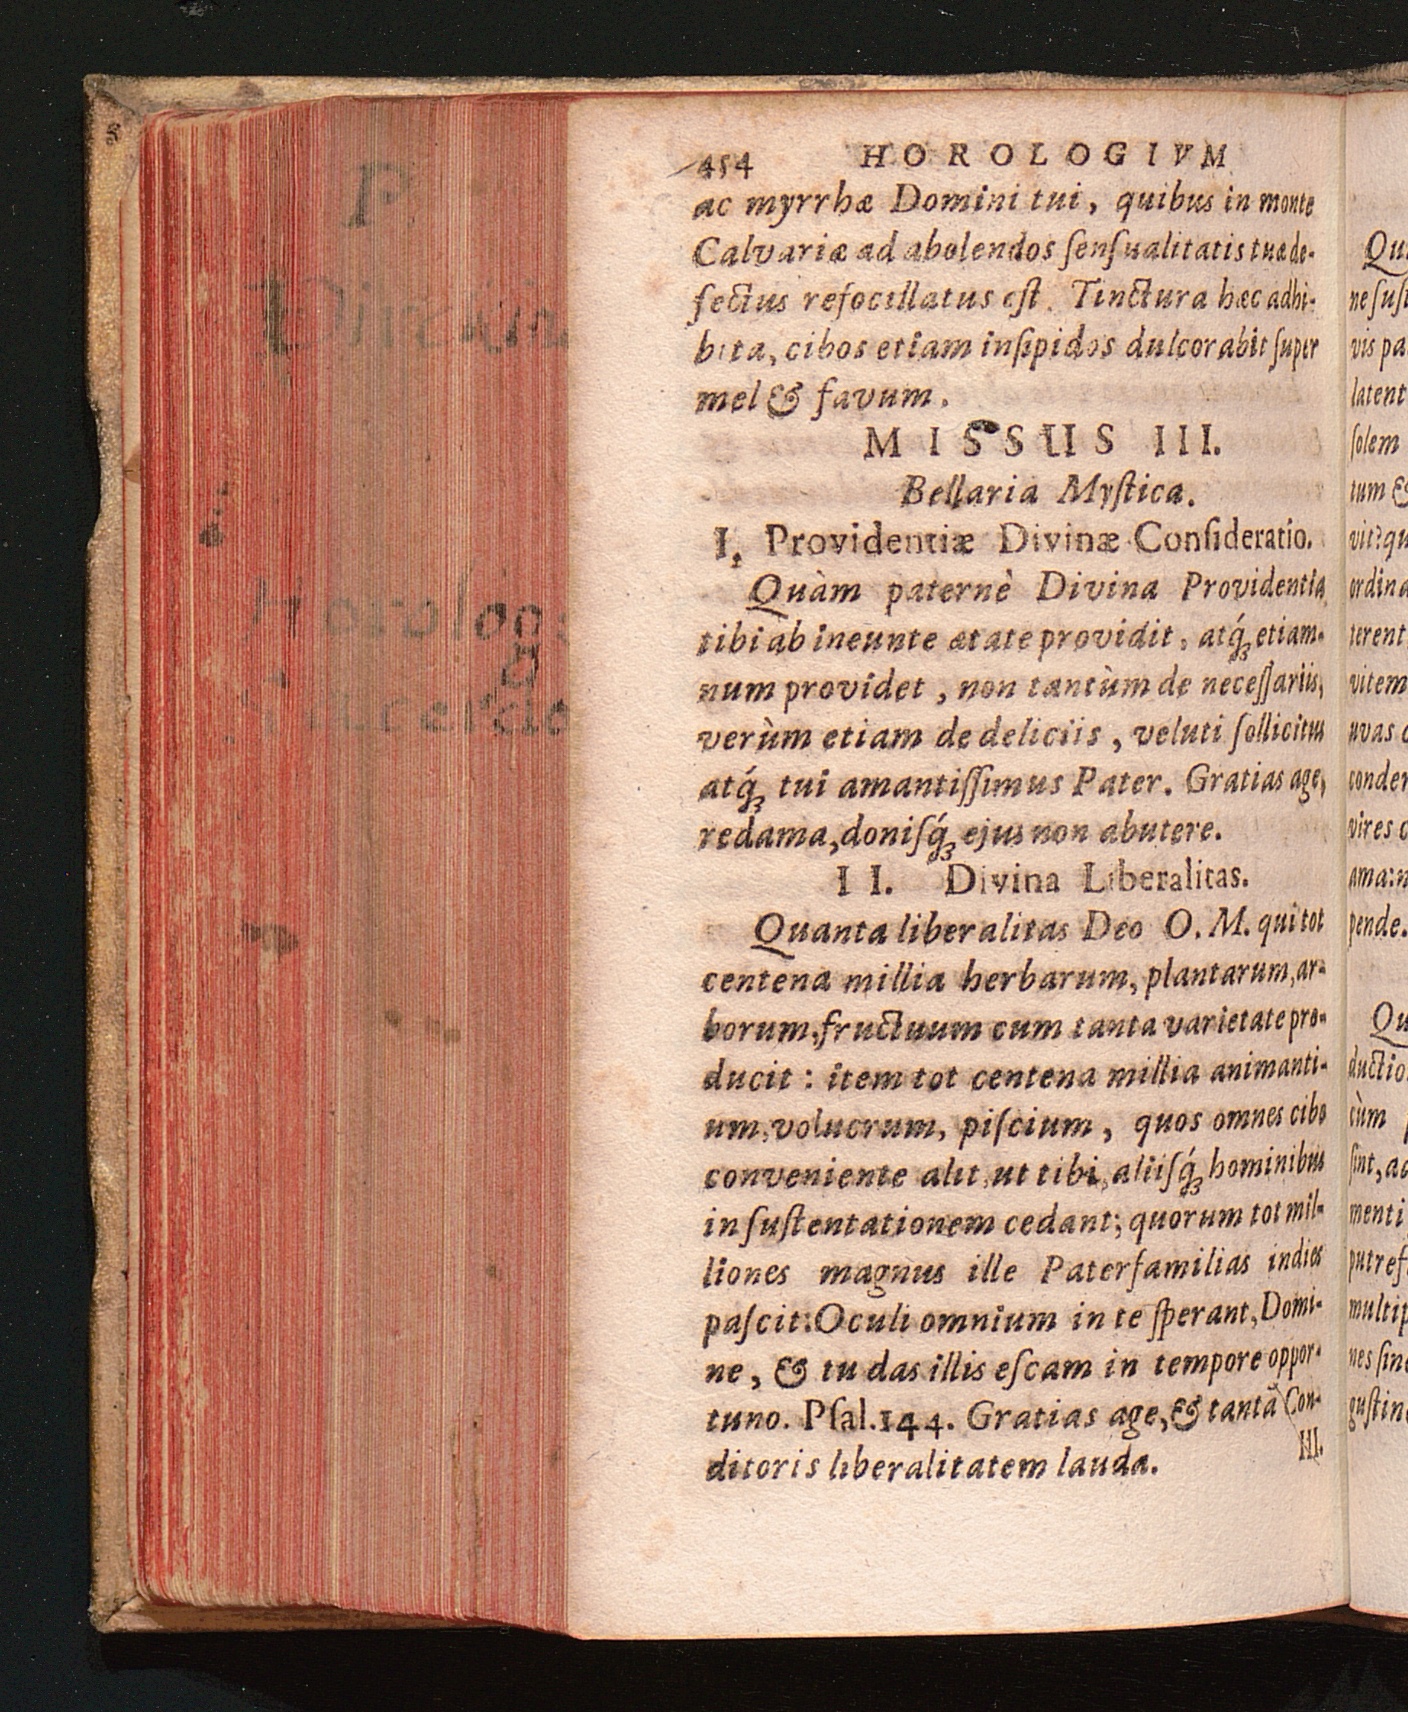 454 HOROLOGIVM
ac myrrhæ Domini tui, quibus in monte
Calvariæ ad abolendos ſenſualitatis tuæ de-
fectus refocillatus eſt. Tinctura hæc adhi-
bita, cibos etiam inſipidos dulcorabit ſuper
mel & favum.
MISSUS III.
Bellaria Myſtica.
I. Providentiæ Divinæ Conſideratio.
Quàm paternè Divina Providentia
tibi ab ineunte ætate providit, atq́ꝫ etiam-
num providet, non tantùm de neceſſariis,
verùm etiam de deliciis, veluti ſollicitus
atq́ꝫ tui amantiſſimus Pater. Gratias age,
redama, doniſq́ꝫ ejus non abutere.
II. Divina Liberalitas.
Quanta liberalitas Deo O. M. qui tot
centena millia herbarum, plantarum, ar-
borum, fructuum cum tanta varietate pro-
ducit : item tot centena millia animanti-
um, volucrum, piſcium, quos omnes cibo
conveniente alit, ut tibi, aliiſq́ꝫ hominibus
in ſuſtentationem cedant; quorum tot mil-
liones magnus ille Paterfamilias indies
paſcit: Oculi omnium in te ſperant, Domi-
ne, & tu das illis eſcam in tempore oppor-
tuno. Pſal. 144. Gratias age, & tantã Con-
ditoris liberalitatem lauda.
III.
P.
Horolog
Qu
ne ſuſ
vis pa
latent
ſolem
tum &
vit? qu
ordina
terent
vitem
uvas
conder
vires
ama: n
pende.
Qu
ductio
cùm
ſint, a
menti
putref
multip
nes ſin
guſtin